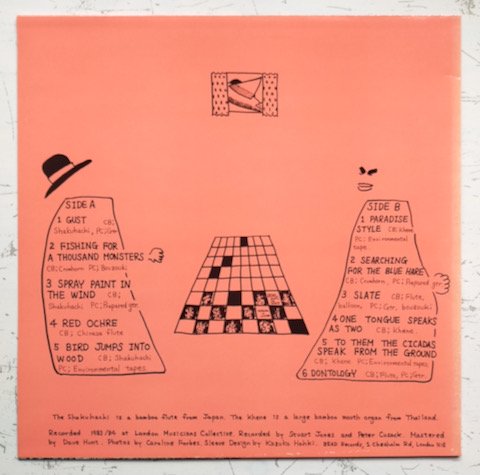 SIDE A
1 GUST CB;
Shakuhachi, PC; Gtr.
2 FISHING FOR
A THOUSAND MONSTERS
CB; Crowhorn PC; Bouzouki
3 SPRAY PAINT IN
THE WIND CB;
Shakuhachi PC; Prepared gtr.
4 RED OCHRE
CB; Chinese Flute
5 BIRD JUMPS INTO
WOOD CB; Shakuhachi
PC; Environmental tapes.
SIDE B
1 PARADISE
STYLE CB; Khene
PC; Environmental
tape.
2 SEARCHING
FOR THE BLUE HARE
CB; Crowhorn, PC; Prepared gtr.
3 SLATE CB; Flute,
balloon, PC; Gtr, bouzouki
4 ONE TONGUE SPEAKS
AS TWO CB; Khene.
5 TO THEM THE CICADAS
SPEAK FROM THE GROUND
CB; Khene PC; Environmental tapes.
6 DONTOLOGY CB; Flute, PC; Gtr.
The Shakuhachi is a bamboo flute from Japan. The Khene is a large bamboo mouth organ from Thailand.
Recorded 1983/84 at London Musicians Collective. Recorded by Stuart Jones and Peter Cusack. Mastered
by Dave Hunt. Photos by Caroline Forbes. Sleeve Design by Kazuko Hohki. BEAD Records, Chesholm Rd, London N16